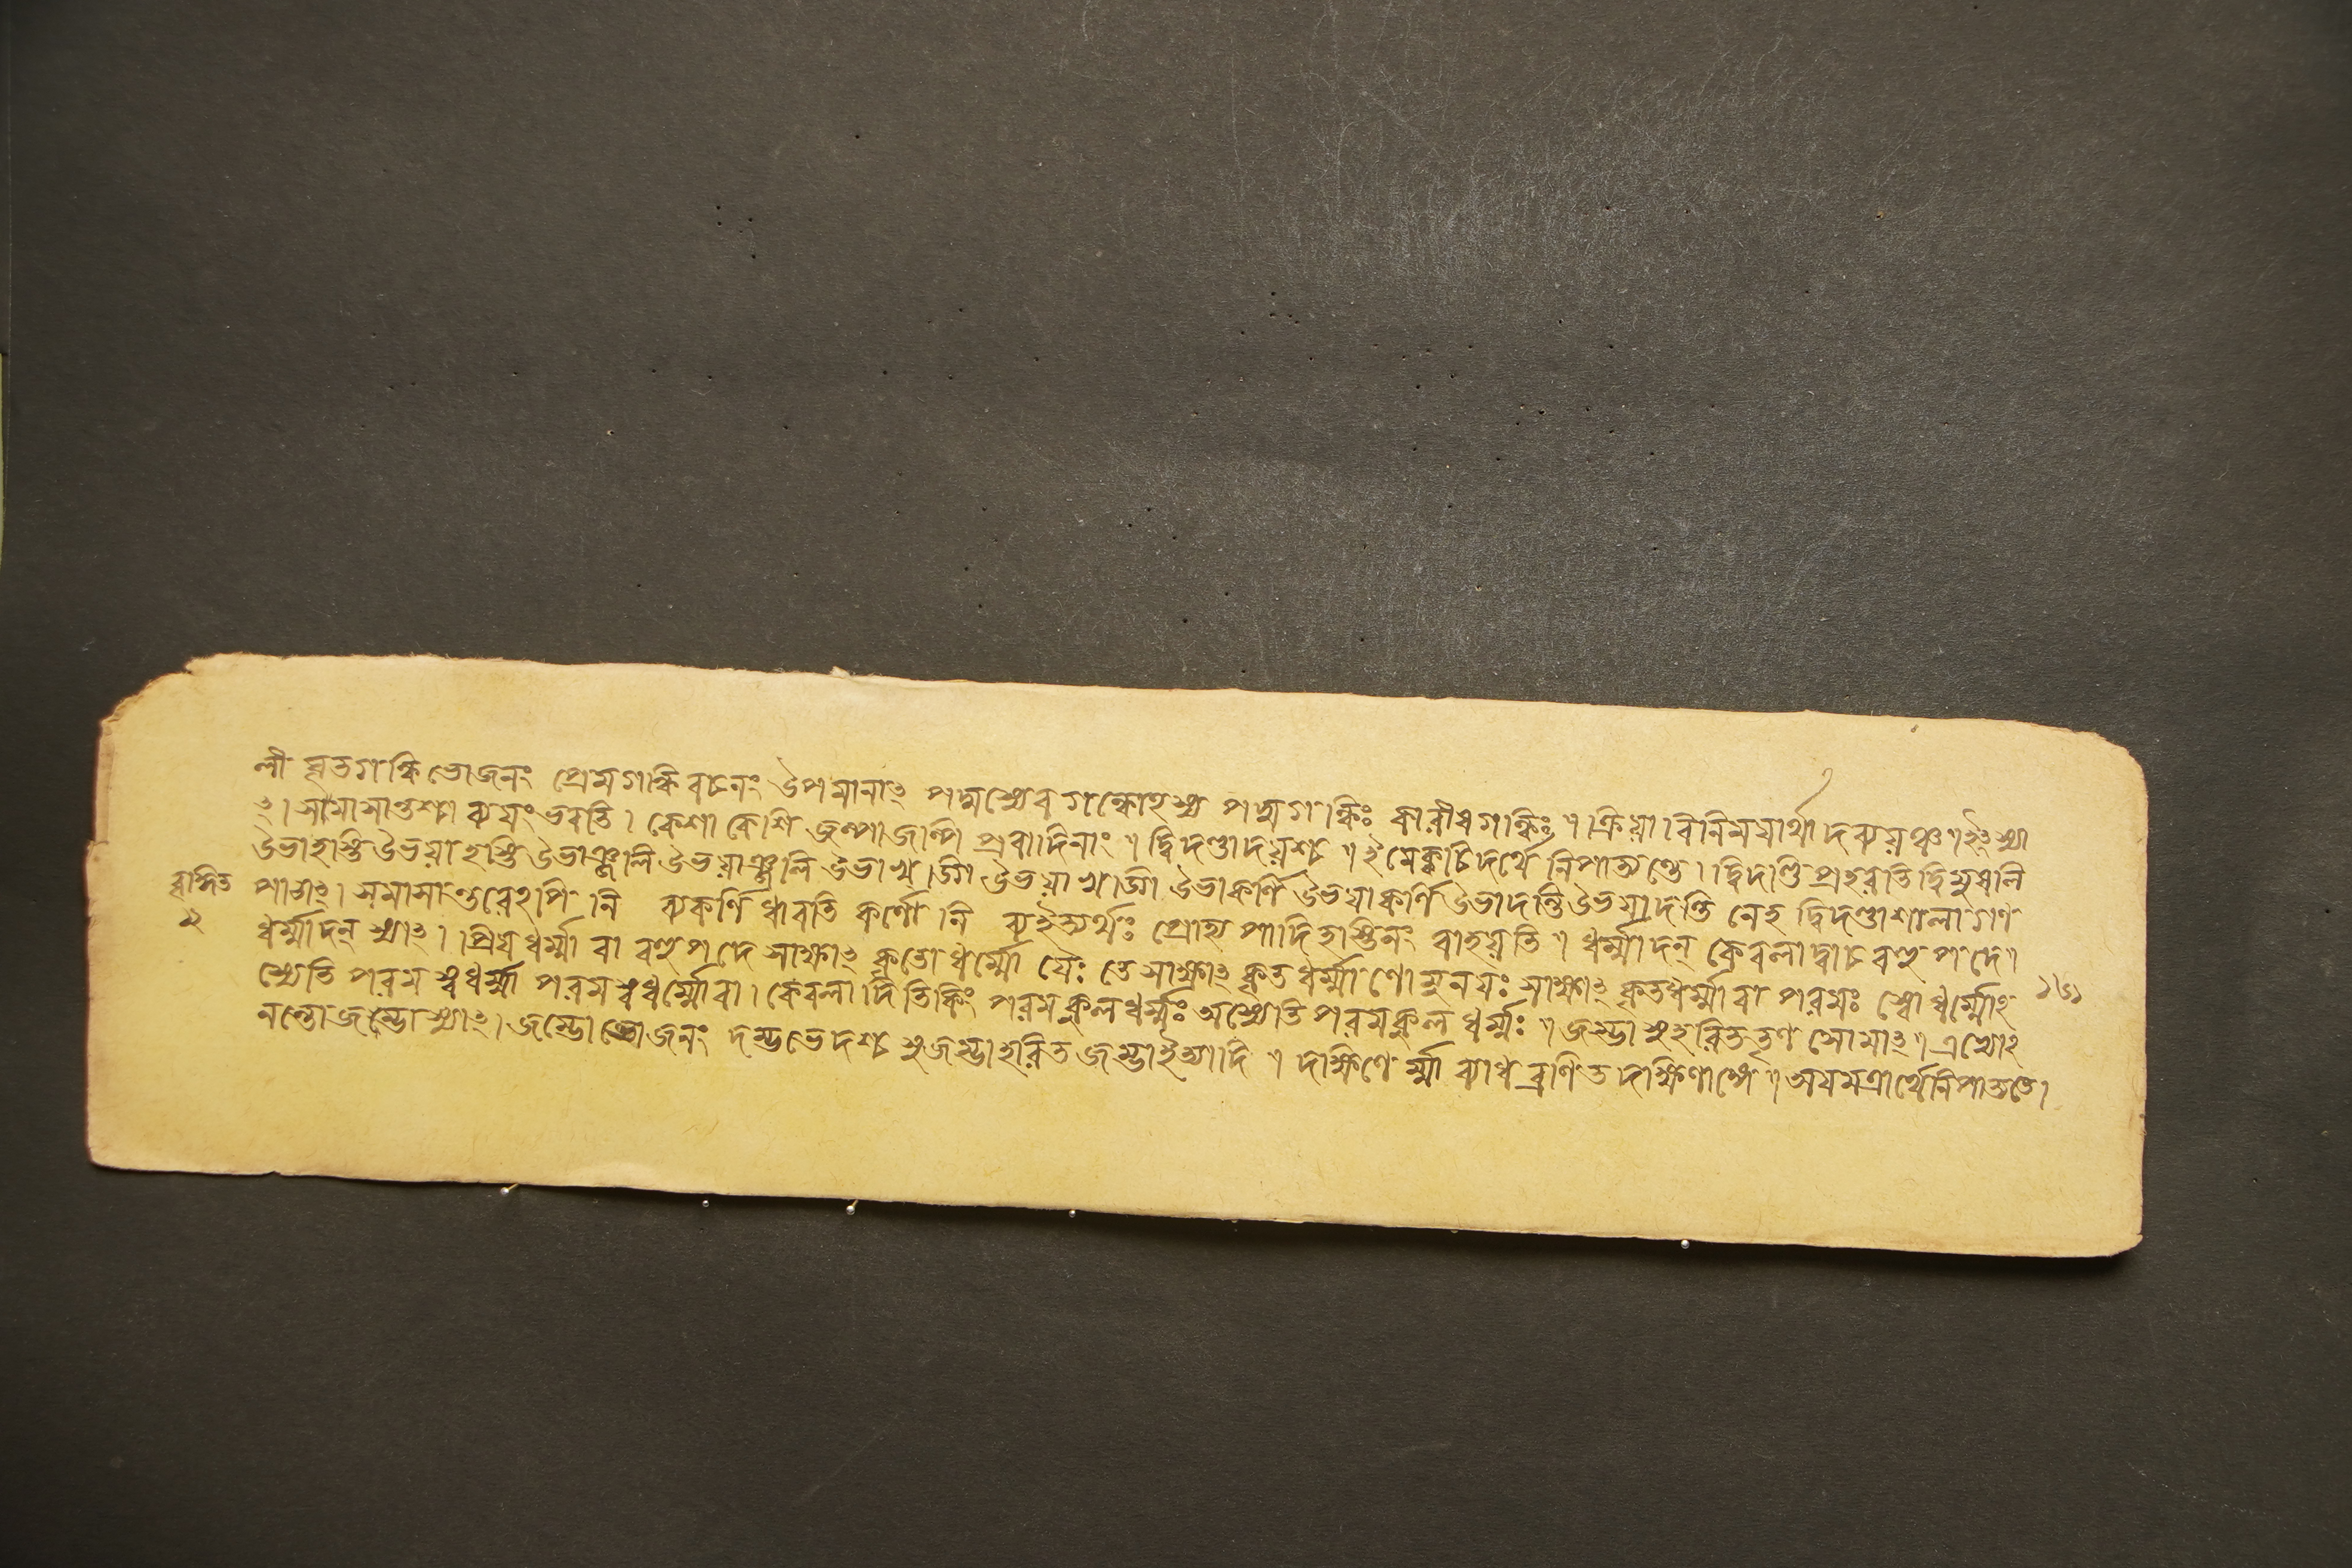 লী ঘৃতগন্ধি ভোজনং প্রেমগন্ধি বচনং উপমানাৎ পদ্মস্যেব গন্ধোহস্য পদ্মগন্ধিঃ কারীষগন্ধিঃ॥ ক্রিয়াবিনিময়ার্থাদব্যয়ঞ্চ॥ ইঃ স্যা
ৎ। সমাসান্তশ্চাব্যয়ং ভবতি। কেশাকেশি জল্পাজল্পি প্রবাদিনাং॥ দ্বিদণ্ডাদয়শ্চ॥ ইমে ক্বচিদর্থে নিপাত্যন্তে। দ্বিদণ্ডি প্রহরতি দ্বিমুষলি
উভাহস্তি উভয়াহস্তি উভাঞ্জলি উভয়াঞ্জলি উভা উভয়া উভাকর্ণি উভয়াকর্ণি উভাদন্তি উভয়াদন্তি নেহ দ্বিদণ্ডাশালা গণ
পাঠাৎ। সমাসান্তরেহপি নি ব্যকর্ণি ধাবতি কর্ণৌ নি ব্যইত্যর্থঃ প্রোহ্য পাদি হস্তিনং বাহয়তি॥ ধর্ম্মাদন্ কেবলাদ্বাচবহু পদে॥
ধর্ম্মাদন্ স্যাৎ। প্রিয়ধর্ম্মা বা বহুপদে সাক্ষাৎ কৃতো ধর্ম্মো যৈঃ তে সাক্ষাৎ কৃতধর্ম্মাণো মুনয়ঃ সাক্ষাৎ কৃতধর্ম্মা বা পরমঃ স্বো ধর্ম্মোহ
স্যেতি পরমস্বধর্ম্মা পরমস্বধর্ম্মো বা। কেবলাদিতি কিং পরমকুলধর্ম্মঃ অস্যেতি পরমকুলধর্ম্মঃ॥ জম্ভা সুহরিততৃণ সোমাৎ॥ এভ্যোহ
নন্তো জম্ভো স্যাৎ। জম্ভো ভোজনং দন্তভেদশ্চ সুজম্ভা হরিতজম্ভা ইত্যাদি॥ দক্ষিণের্ম্মা ব্যাধ ব্রণিত দক্ষিণাঙ্গে॥ অয়মত্রার্থে নিপাত্যতে।
২
১৬১